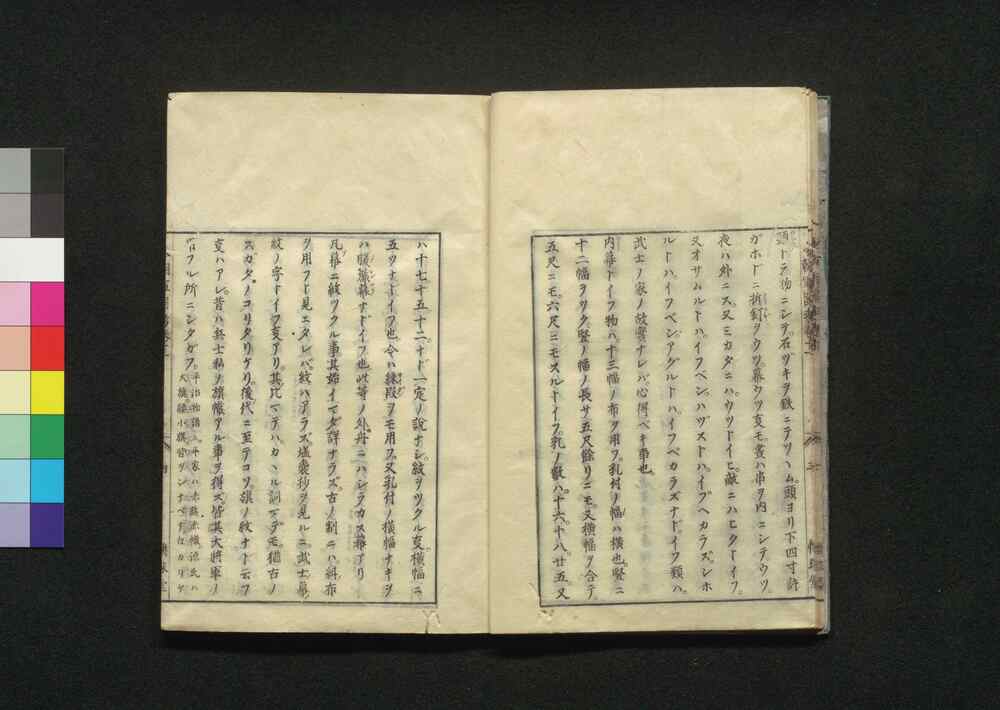 頭トテ物ニシテ。石ツキヲ鉄ニテツヽム。頭ヨリ下四寸許
ガホドニ折釘ヲウツ。幕ウツ支モ晝ハ串ヲ内ニシテウツ。
夜ハ外ニス。又ミカタニハ。ウツトイヒ。敵ニハヒクトイフ。
又オサムルトハ。イフベシ。ハヅストハ。イフヘカラズ。シホ
ルトハ。イフベシ。アグルトハ。イフベカラズナドイフ類ハ。
武士ノ家ノ故實ナレバ。心得ベキ事也
内幕トイフ物ハ。十三幅ノ布ヲ用フ。乳付ノ幅ハ横也。竪ニ
十二幅ヲツク。竪ノ幅ノ長サ五尺餘リニモ。又横幅ヲ合テ
五尺ニモ。六尺ニモスルトイフ。乳ノ數ハ。十六。十八。廿五。又
ハ十七。千五。十二。ナド一定ノ說ナシ。紋ヲツクル支横幅ニ
五ツナドイフ也。今ハ練段ヲモ用フ。又乳付ノ横幅ナキヲ
ハ。縢幕ナドイフ也。此等ノ外舟ニハシラカス幕アリ
凡幕ニ紋ツクル事其始イマダ詳ナラズ。古ノ制ニハ。斜布
ヲ用フト見エタレバ。紋ハアラズ。壒囊抄ヲ見ルニ。武士幕
紋ノ字トイフ支アリ。其比マデハ。カヽル調マデモ。猶古ノ
スガタノコリタリケリ。後代ニ至テコソ。旗ノ紋ナド云フ
支ハアレ。昔ハ兵士私ノ旗幟アル事ヲ得ズ。皆其大將軍ノ
官フル所ニシタガフ。
平治物語ニ。平家ハ赤旗赤幟。源氏ハ
大旗。腰小旗。皆ヲシナベテ。白カリケ